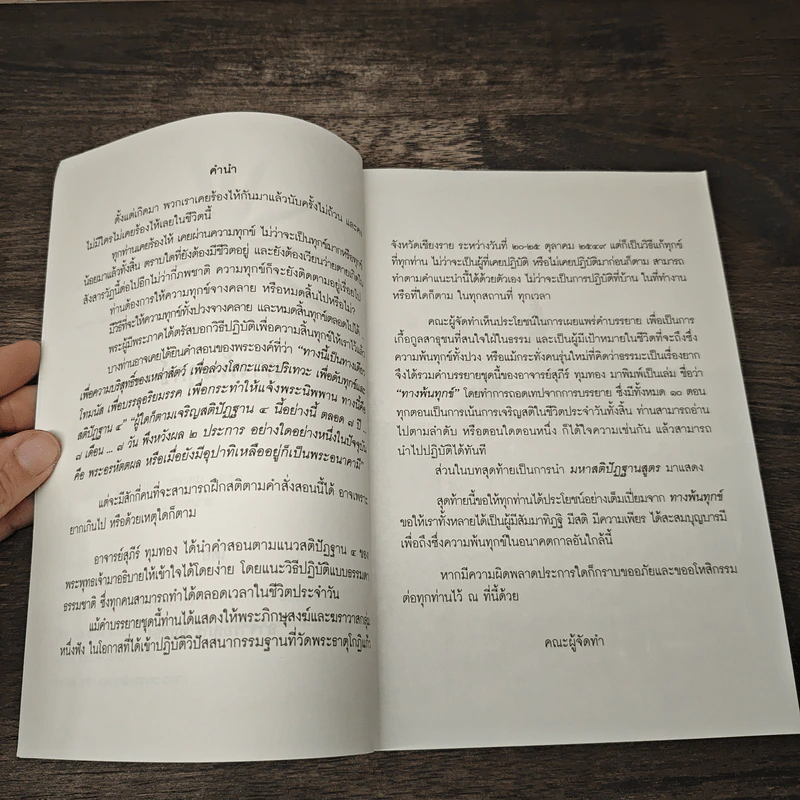 คำนำ
ตั้งแต่เกิดมา พวกเราเคยร้องไห้กันมาแล้วนับครั้งไม่ถ้วน และคง
ไม่มีใครไม่เคยร้องไห้เลยในชีวิตนี้
ทุกท่านเคยร้องไห้ เคยผ่านความทุกข์ ไม่ว่าจะเป็นทุกข์มากหรือทุกข์
น้อยมาแล้วทั้งสิ้น ตราบใดที่ยังต้องมีชีวิตอยู่ และยังต้องเวียนว่ายตายเกิดใน
สังสารวัฏนี้ต่อไปอีกไม่ว่ากี่ภพชาติ ความทุกข์ก็จะยังติดตามอยู่เรื่อยไป
ท่านต้องการให้ความทุกข์จางคลาย หรือหมดสิ้นไปหรือไม่?
มีวิธีที่จะให้ความทุกข์ทั้งปวงจางคลาย และหมดสิ้นทุกข์ตลอดไปได้
พระผู้มีพระภาคได้ตรัสบอกวิธีปฏิบัติเพื่อความสิ้นทุกข์ให้เราไว้แล้ว
บางท่านอาจเคยได้ยินคำสอนของพระองค์ที่ว่า "ทางนี้เป็นทางเดียว
เพื่อความบริสุทธิ์ของเหล่าสัตว์ เพื่อล่วงโสกะและปริเทวะ เพื่อดับทุกข์และ
โทมนัส เพื่อบรรลุอริยมรรค เพื่อกระทำให้แจ้งพระนิพพาน ทางนี้คือ
สติปัฏฐาน ๔" "ผู้ใดก็ตามเจริญสติปัฏฐาน ๔ นี้อย่างนี้ ตลอด ๗ ปี ...
๗ เดือน ... ๗ วัน พึงหวังผล ๒ ประการ อย่างใดอย่างหนึ่งในปัจจุบัน
คือ พระอรหัตตผล หรือเมื่อยังมีอุปาทิเหลืออยู่ก็เป็นพระอนาคามี"
แต่จะมีสักกี่คนที่จะสามารถฝึกสติตามคำสั่งสอนนี้ได้ อาจเพราะ
ยากเกินไป หรือด้วยเหตุใดก็ตาม
อาจารย์สุภีร์ ทุมทอง ได้นำคำสอนตามแนวสติปัฏฐาน ๔ ของ
พระพุทธเจ้ามาอธิบายให้เข้าใจได้โดยง่าย โดยแนะวิธีปฏิบัติแบบธรรมดา
ธรรมชาติ ซึ่งทุกคนสามารถทำได้ตลอดเวลาในชีวิตประจำวัน
แม้คำบรรยายชุดนี้ท่านได้แสดงให้พระภิกษุสงฆ์และฆราวาสกลุ่ม
หนึ่งฟัง ในโอกาสที่ได้เข้าปฏิบัติวิปัสสนากรรมฐานที่วัดพระธาตุโกฏิแก้ว
จังหวัดเชียงราย ระหว่างวันที่ ๒๐-๒๕ ตุลาคม ๒๕๔๙ แต่ก็เป็นวิธีแก้ทุกข์
ที่ทุกท่าน ไม่ว่าจะเป็นผู้ที่เคยปฏิบัติ หรือไม่เคยปฏิบัติมาก่อนก็ตาม สามารถ
ทำตามคำแนะนำนี้ได้ด้วยตัวเอง ไม่ว่าจะเป็นการปฏิบัติที่บ้าน ในที่ทำงาน
หรือที่ใดก็ตาม ในทุกสถานที่ ทุกเวลา
คณะผู้จัดทำเห็นประโยชน์ในการเผยแพร่คำบรรยาย เพื่อเป็นการ
เกื้อกูลสาธุชนที่สนใจใฝ่ในธรรม และเป็นผู้มีเป้าหมายในชีวิตที่จะถึงซึ่ง
ความพ้นทุกข์ทั้งปวง หรือแม้กระทั่งคนรุ่นใหม่ที่คิดว่าธรรมะเป็นเรื่องยาก
จึงได้รวมคำบรรยายชุดนี้ของอาจารย์สุภีร์ ทุมทอง มาพิมพ์เป็นเล่ม ชื่อว่า
"ทางพ้นทุกข์" โดยทำการถอดเทปจากการบรรยาย ซึ่งมีทั้งหมด ๑๐ ตอน
ทุกตอนเป็นการเน้นการเจริญสติในชีวิตประจำวันทั้งสิ้น ท่านสามารถอ่าน
ไปตามลำดับ หรือตอนใดตอนหนึ่ง ก็ได้ใจความเช่นกัน แล้วสามารถ
นำไปปฏิบัติได้ทันที
ส่วนในบทสุดท้ายเป็นการนำ มหาสติปัฏฐานสูตร มาแสดง
สุดท้ายนี้ขอให้ทุกท่านได้ประโยชน์อย่างเต็มเปี่ยมจาก ทางพ้นทุกข์
ขอให้เราทั้งหลายได้เป็นผู้มีสัมมาทิฏฐิ มีสติ มีความเพียร ได้สะสมบุญบารมี
เพื่อถึงซึ่งความพ้นทุกข์ในอนาคตกาลอันใกล้นี้
หากมีความผิดพลาดประการใดก็กราบขออภัยและขออโหสิกรรม
ต่อทุกท่านไว้ ณ ที่นี้ด้วย
คณะผู้จัดทำ